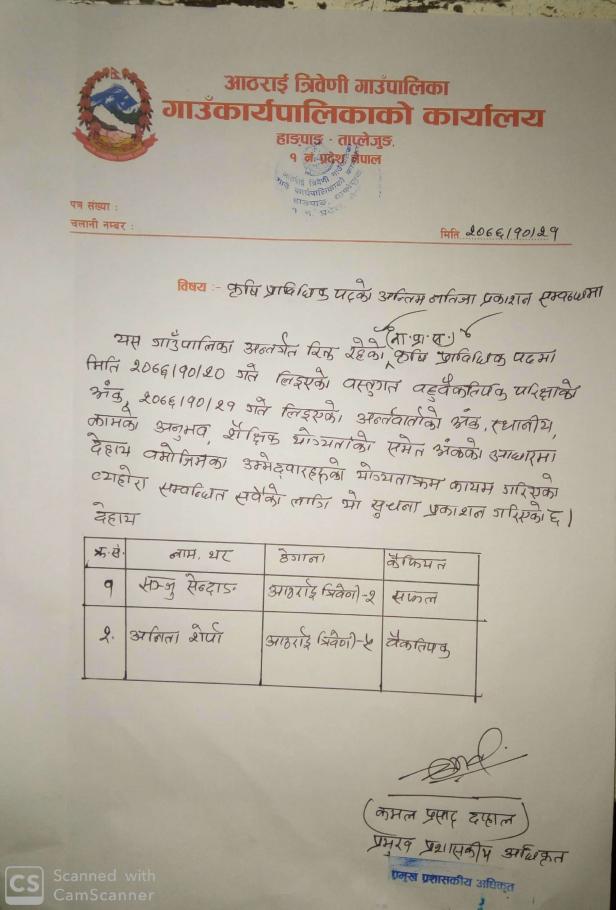 आठराई त्रिवेणी गाउँपालिका
गाउँकार्यपालिकाको कार्यालय
हाङपाङ - ताप्लेजुङ.
१ नं प्रदेश, नेपाल
पत्र संख्या :
चलानी नम्बर :
मिति २०७६।१०।२१
विषय :- कृषि प्राविधिक पदको अन्तिम नतिजा प्रकाशन सम्बन्धमा
(ना.प्रा.स.)
यस गाउँपालिका अन्तर्गत रिक्त रहेको कृषि प्राविधिक पदमा
मिति २०७६।१०।२० गते लिइएको वस्तुगत बहुवैकल्पिक परिक्षाको
अंक, २०७६।१०।२१ गते लिइएको अर्न्तवार्ताको अंक, स्थानीय,
कामको अनुभव, शैक्षिक योग्यताको समेत अंकको आधारमा
देहाय वमोजिमका उम्मेदवारहरुको योग्यताक्रम कायम गरिएको
व्यहोरा सम्वन्धित सवैको लागि यो सुचना प्रकाशन गरिएको छ।
देहाय
क्र.सं. नाम, थर ठेगाना कैफियत
१ सञ्जु सेन्दाङ आठराई त्रिवेणी-२ सफल
२. अनिता शेर्पा आठराई त्रिवेणी-५ वैकल्पिक
(कमल प्रसाद दाहाल)
प्रमुख प्रशासकीय अधिकृत
प्रमुख प्रशासकीय अधिकृत
CS Scanned with
CamScanner